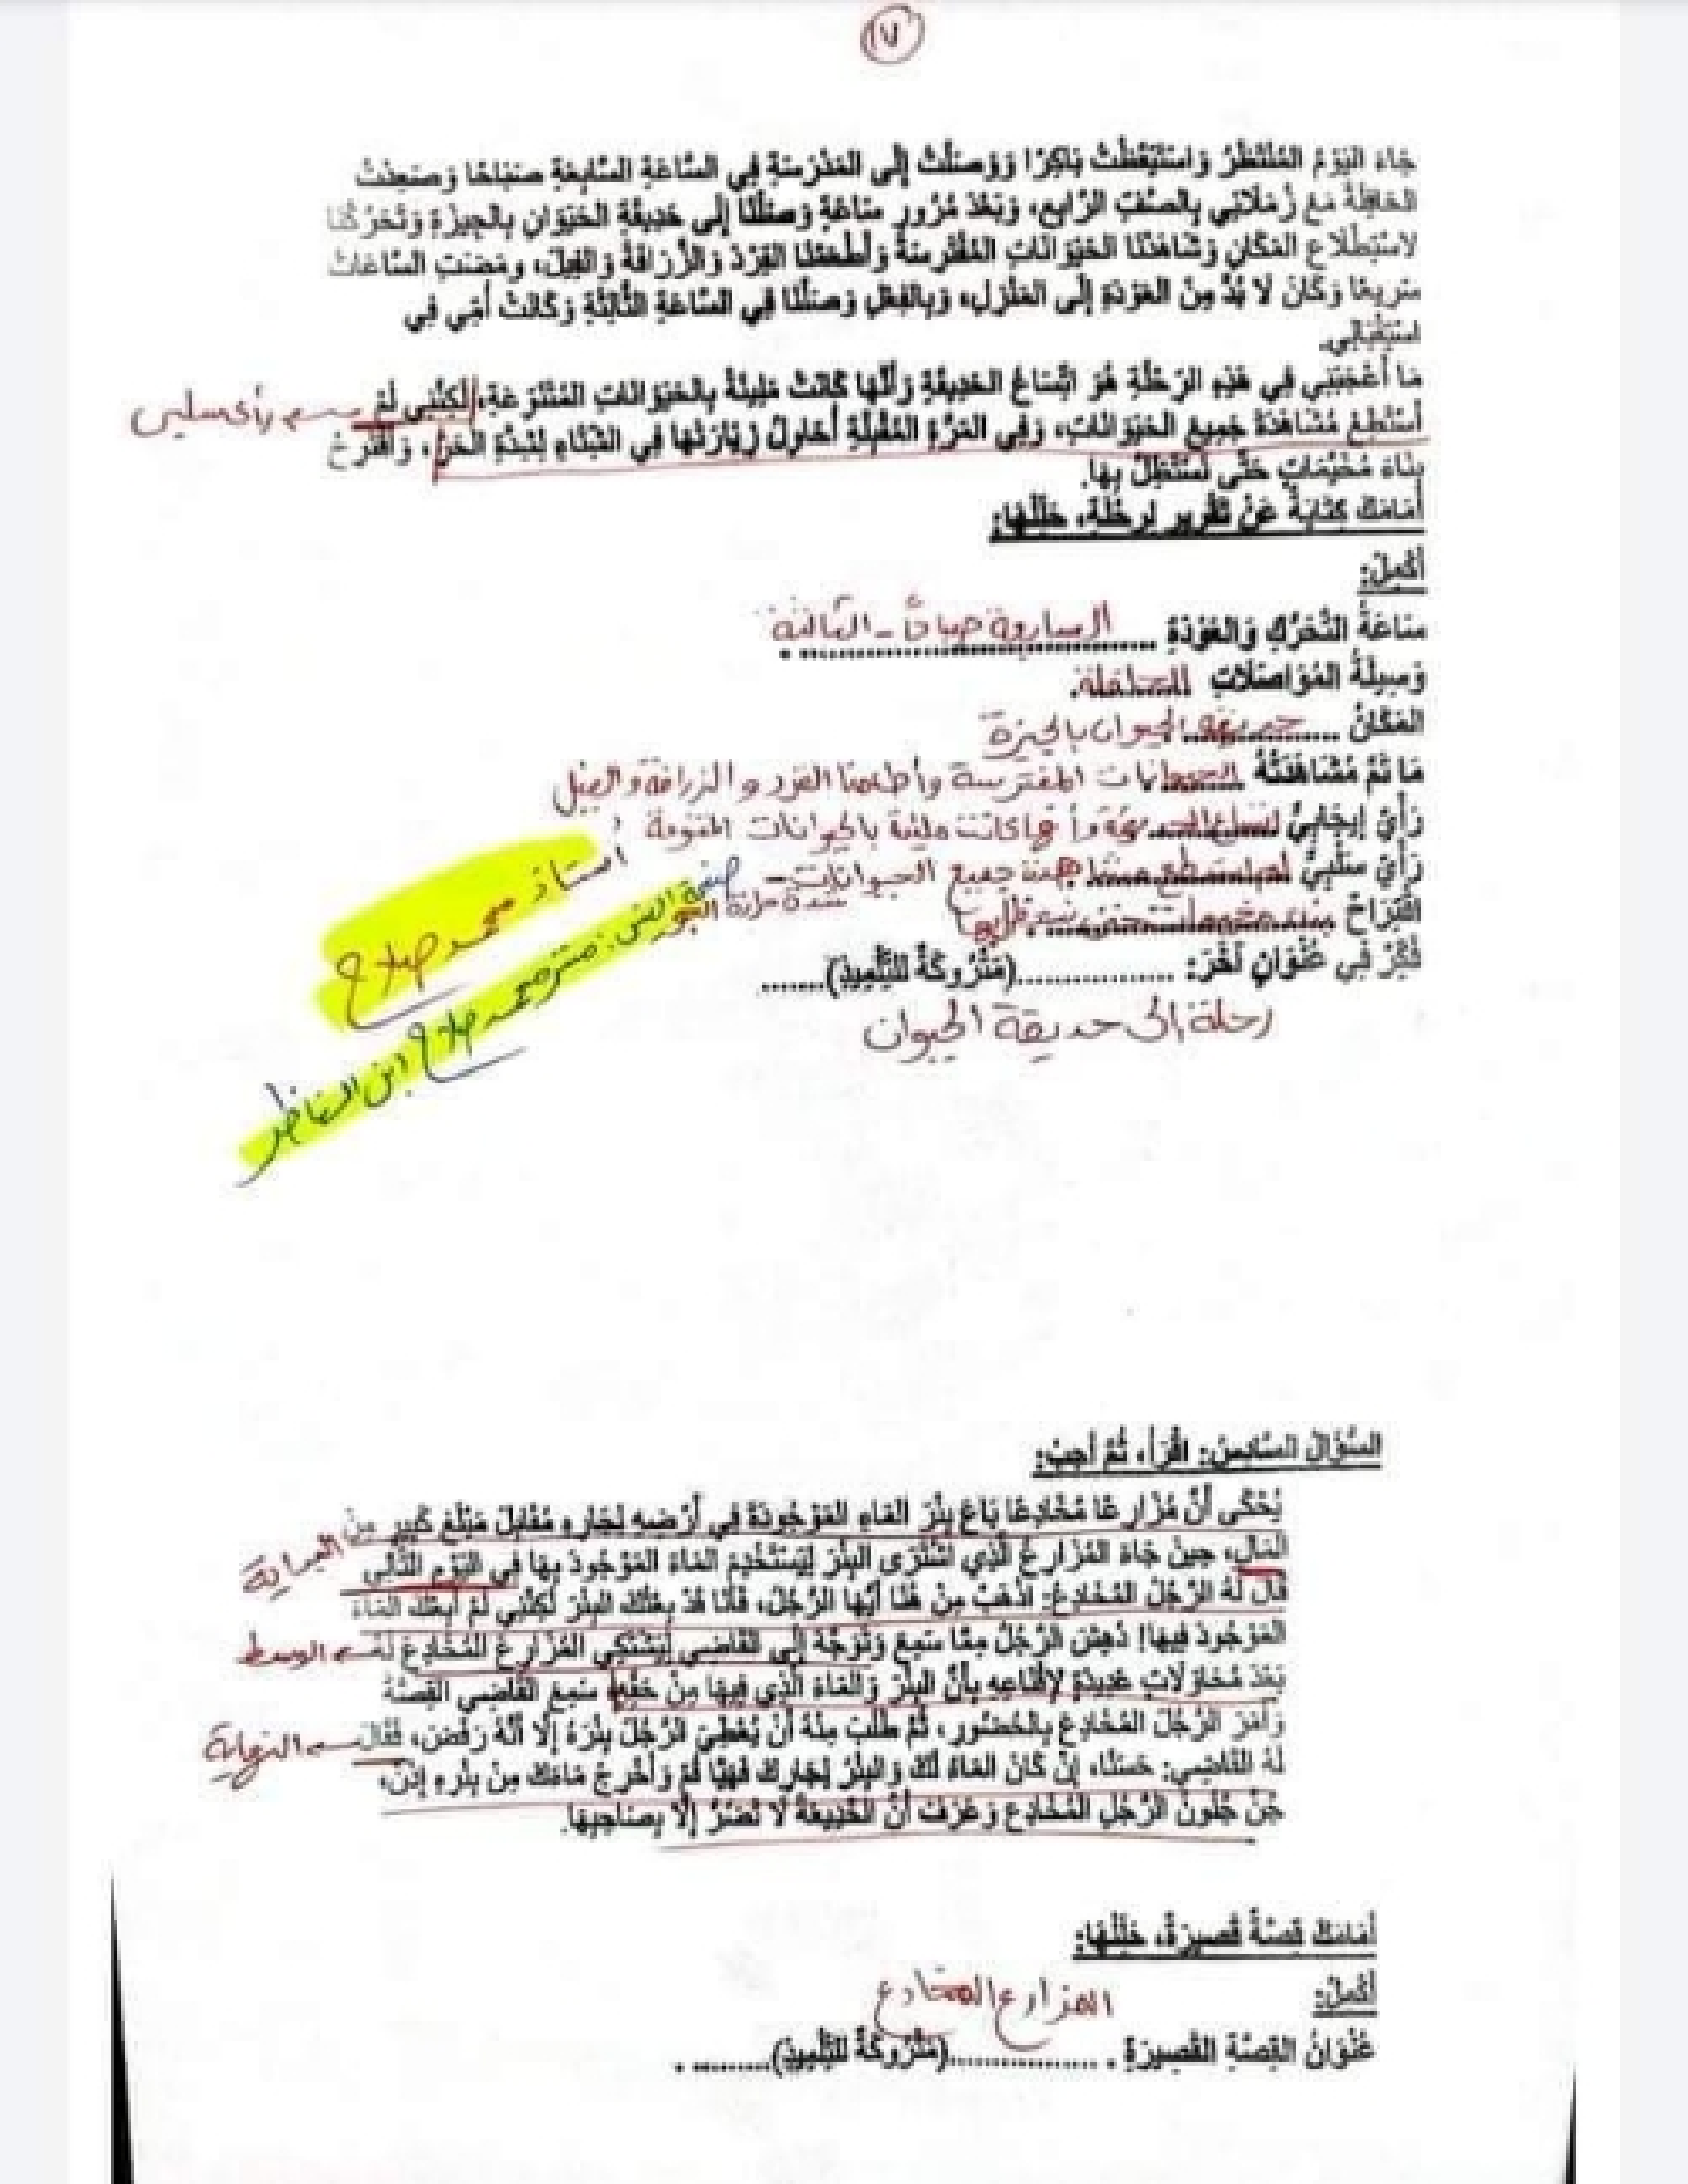 ١٧
جَاءَ اليَوْمُ المُنْتَظَرُ وَاسْتَيْقَظْتُ بَاكِرًا وَوَصَلْتُ إِلَى المَدْرَسَةِ فِي السَّاعَةِ السَّابِعَةِ صَبَاحًا وَصَعِدْتُ
الحَافِلَةَ مَعَ زُمَلَائِي بِالصَّفِّ الرَّابِعِ، وَبَعْدَ مُرُورِ سَاعَةٍ وَصَلْنَا إِلَى حَدِيقَةِ الحَيَوَانِ بِالجِيزَةِ وَتَحَرَّكْنَا
لاسْتِطْلَاعِ المَكَانِ وَشَاهَدْنَا الحَيَوَانَاتِ المُفْتَرِسَةَ وَأَطْعَمْنَا القِرْدَ وَالزَّرَافَةَ وَالفِيلَ، ومَضَتِ السَّاعَاتُ
سَرِيعًا وَكَانَ لَا بُدَّ مِنَ العَوْدَةِ إِلَى المَنْزِلِ، وَبِالفِعْلِ وَصَلْنَا فِي السَّاعَةِ الثَّالِثَةِ وَكَانَتْ أُمِّي فِي
اسْتِقْبَالِي.
مَا أَعْجَبَنِي فِي هَذِهِ الرِّحْلَةِ هُوَ اتِّسَاعُ الحَدِيقَةِ وَأَنَّهَا كَانَتْ مَلِيئَةً بِالحَيَوَانَاتِ المُتَنَوِّعَةِ، لَكِنَّنِي لَمْ رأى سلبى
أَسْتَطِعْ مُشَاهَدَةَ جَمِيعِ الحَيَوَانَاتِ، وَفِي المَرَّةِ المُقْبِلَةِ أُحَاوِلُ زِيَارَتَهَا فِي الشِّتَاءِ لِشِدَّةِ الحَرِّ، وَأَقْتَرِحُ
بِنَاءَ مُخَيَّمَاتٍ حَتَّى نَسْتَظِلَّ بِهَا.
أَمَامَكَ كِتَابَةٌ عَنْ تَقْرِيرٍ لِرِحْلَةٍ، حَلِّلْهَا:
أَكْمِلْ:
سَاعَةُ التَّحَرُّكِ وَالعَوْدَةِ السابعة صباحاً - الثالثة
وَسِيلَةُ المُوَاصَلَاتِ الحافلة.
المَكَانُ حديقة الحيوان بالجيزة
مَا تَمَّ مُشَاهَدَتُهُ الحيوانات المفترسة وأطعمنا القرد والزرافة والفيل
رَأْيٌ إِيجَابِيٌّ اتساع الحديقة وأنها كانت مليئة بالحيوانات المتنوعة
رَأْيٌ سَلْبِيٌّ لم أستطع مشاهدة جميع الحيوانات - شدة حرارة الجو
اقْتِرَاحٌ بناء مخيمات حتى نستظل بها
فَكِّرْ فِي عُنْوَانٍ آخَرَ: ..................(مَتْرُوكَةٌ لِلتِّلْمِيذِ).......
رحلة إلى حديقة الحيوان
أستاذ محمد صلاح
صفحة الفيس: مستر محمد صلاح ابن الناظر
السُّؤَالُ السَّادِسُ: اقْرَأْ، ثُمَّ أَجِبْ:
يُحْكَى أَنَّ مُزَارِعًا مُخَادِعًا بَاعَ بِئْرَ المَاءِ المَوْجُودَةَ فِي أَرْضِهِ لِجَارِهِ مُقَابِلَ مَبْلَغٍ كَبِيرٍ مِنَ البداية
المَالِ، حِينَ جَاءَ المُزَارِعُ الَّذِي اشْتَرَى البِئْرَ لِيَسْتَخْدِمَ المَاءَ المَوْجُودَ بِهَا فِي اليَوْمِ التَّالِي
قَالَ لَهُ الرَّجُلُ المُخَادِعُ: اذْهَبْ مِنْ هُنَا أَيُّهَا الرَّجُلُ، فَأَنَا قَدْ بِعْتُكَ البِئْرَ لَكِنَّنِي لَمْ أَبِعْكَ المَاءَ
المَوْجُودَ فِيهَا! دُهِشَ الرَّجُلُ مِمَّا سَمِعَ وَتَوَجَّهَ إِلَى القَاضِي لِيَشْتَكِيَ المُزَارِعَ المُخَادِعَ لَهُ الوسط
بَعْدَ مُحَاوَلَاتٍ عَدِيدَةٍ لِإِقْنَاعِهِ بِأَنَّ البِئْرَ وَالمَاءَ الَّذِي فِيهَا مِنْ حَقِّهِ، سَمِعَ القَاضِي القِصَّةَ
وَأَمَرَ الرَّجُلَ المُخَادِعَ بِالحُضُورِ، ثُمَّ طَلَبَ مِنْهُ أَنْ يُعْطِيَ الرَّجُلَ بِئْرَهُ إِلَّا أَنَّهُ رَفَضَ، فَقَالَ النهاية
لَهُ القَاضِي: حَسَنًا، إِنْ كَانَ المَاءُ لَكَ وَالبِئْرُ لِجَارِكَ فَهَيَّا قُمْ وَأَخْرِجْ مَاءَكَ مِنْ بِئْرِهِ إِذَنْ،
جُنَّ جُنُونُ الرَّجُلِ المُخَادِعِ وَعَرَفَ أَنَّ الخَدِيعَةَ لَا تَضُرُّ إِلَّا بِصَاحِبِهَا.
أَمَامَكَ قِصَّةٌ قَصِيرَةٌ، حَلِّلْهَا:
أَكْمِلْ:
المزارع المخادع
عُنْوَانُ القِصَّةِ القَصِيرَةِ ..................(مَتْرُوكَةٌ لِلتِّلْمِيذِ)......... .